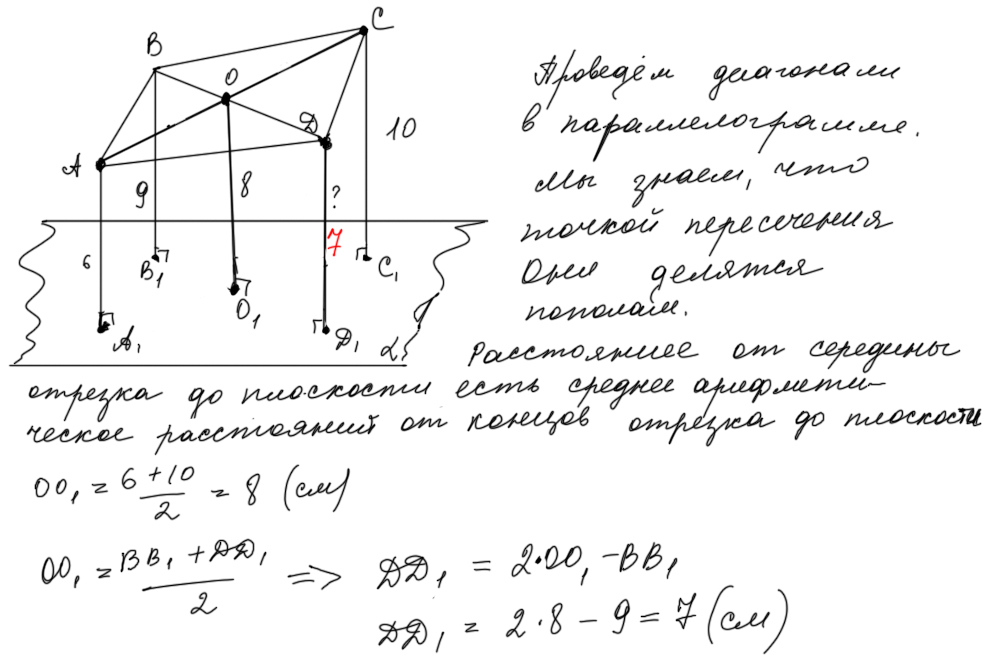 C
B
O
Проведём диагонали
Д
в параллелограмме.
10
A
Мы знаем, что
9
8
?
точкой пересечения
7
6
B₁
C₁
Они делятся
O₁
пополам.
A₁
Д₁
α
Расстояние от середины
отрезка до плоскости есть среднее арифмети-
ческое расстояний от концов отрезка до плоскости
OO₁ = 6+10/2 = 8 (см)
OO₁ = BB₁ + ДД₁/2 => ДД₁ = 2·OO₁ - BB₁
ДД₁ = 2·8 - 9 = 7 (см)